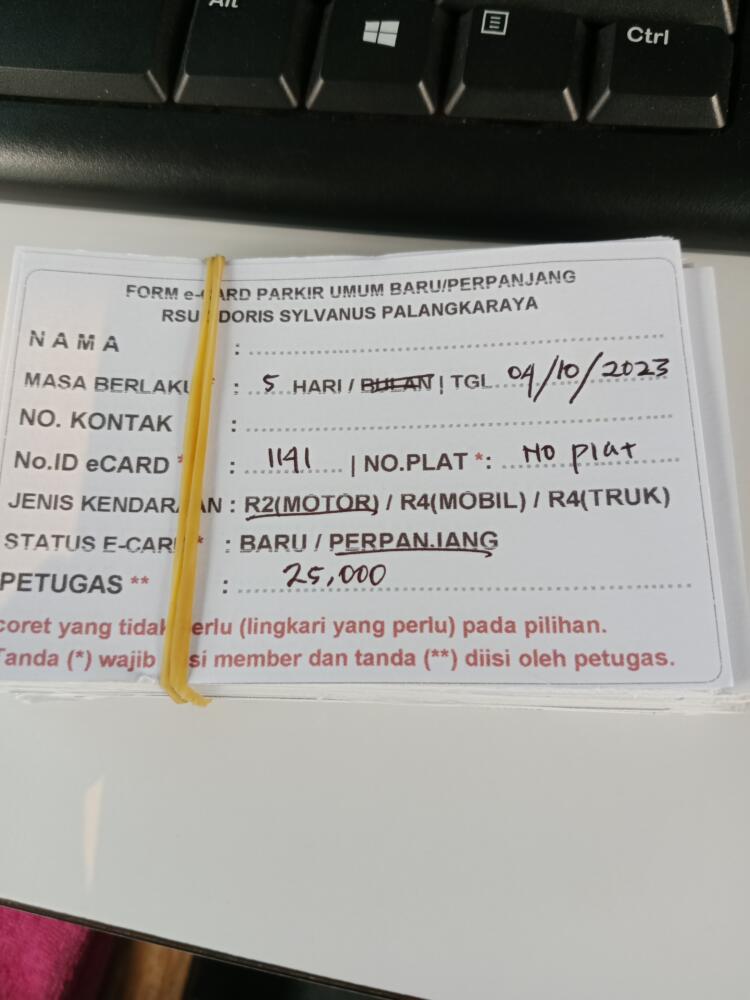 Alt
Ctrl
FORM e-CARD PARKIR UMUM BARU/PERPANJANG
RSU DORIS SYLVANUS PALANGKARAYA
N A M A :
MASA BERLAKU : 5 HARI / BULAN | TGL 04/10/2023
NO. KONTAK :
No.ID eCARD * : 1141 | NO.PLAT *: No plat
JENIS KENDARAAN : R2(MOTOR) / R4(MOBIL) / R4(TRUK)
STATUS E-CARD * : BARU / PERPANJANG
PETUGAS ** : 25,000
coret yang tidak perlu (lingkari yang perlu) pada pilihan.
Tanda (*) wajib isi member dan tanda (**) diisi oleh petugas.